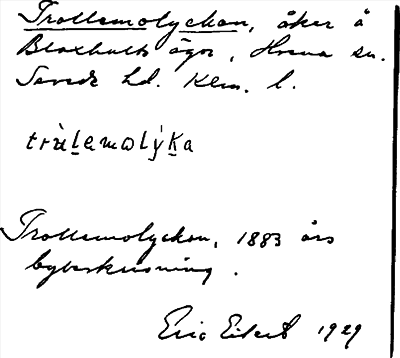 Trollemolyckan, åker å
Bloxhults ägor, Hvena sn.
Sevede hd. Kalm. l.
trùlemolýka
Trollemolyckan, 1883 års
bybeskrivning.
Eric Eilert 1929